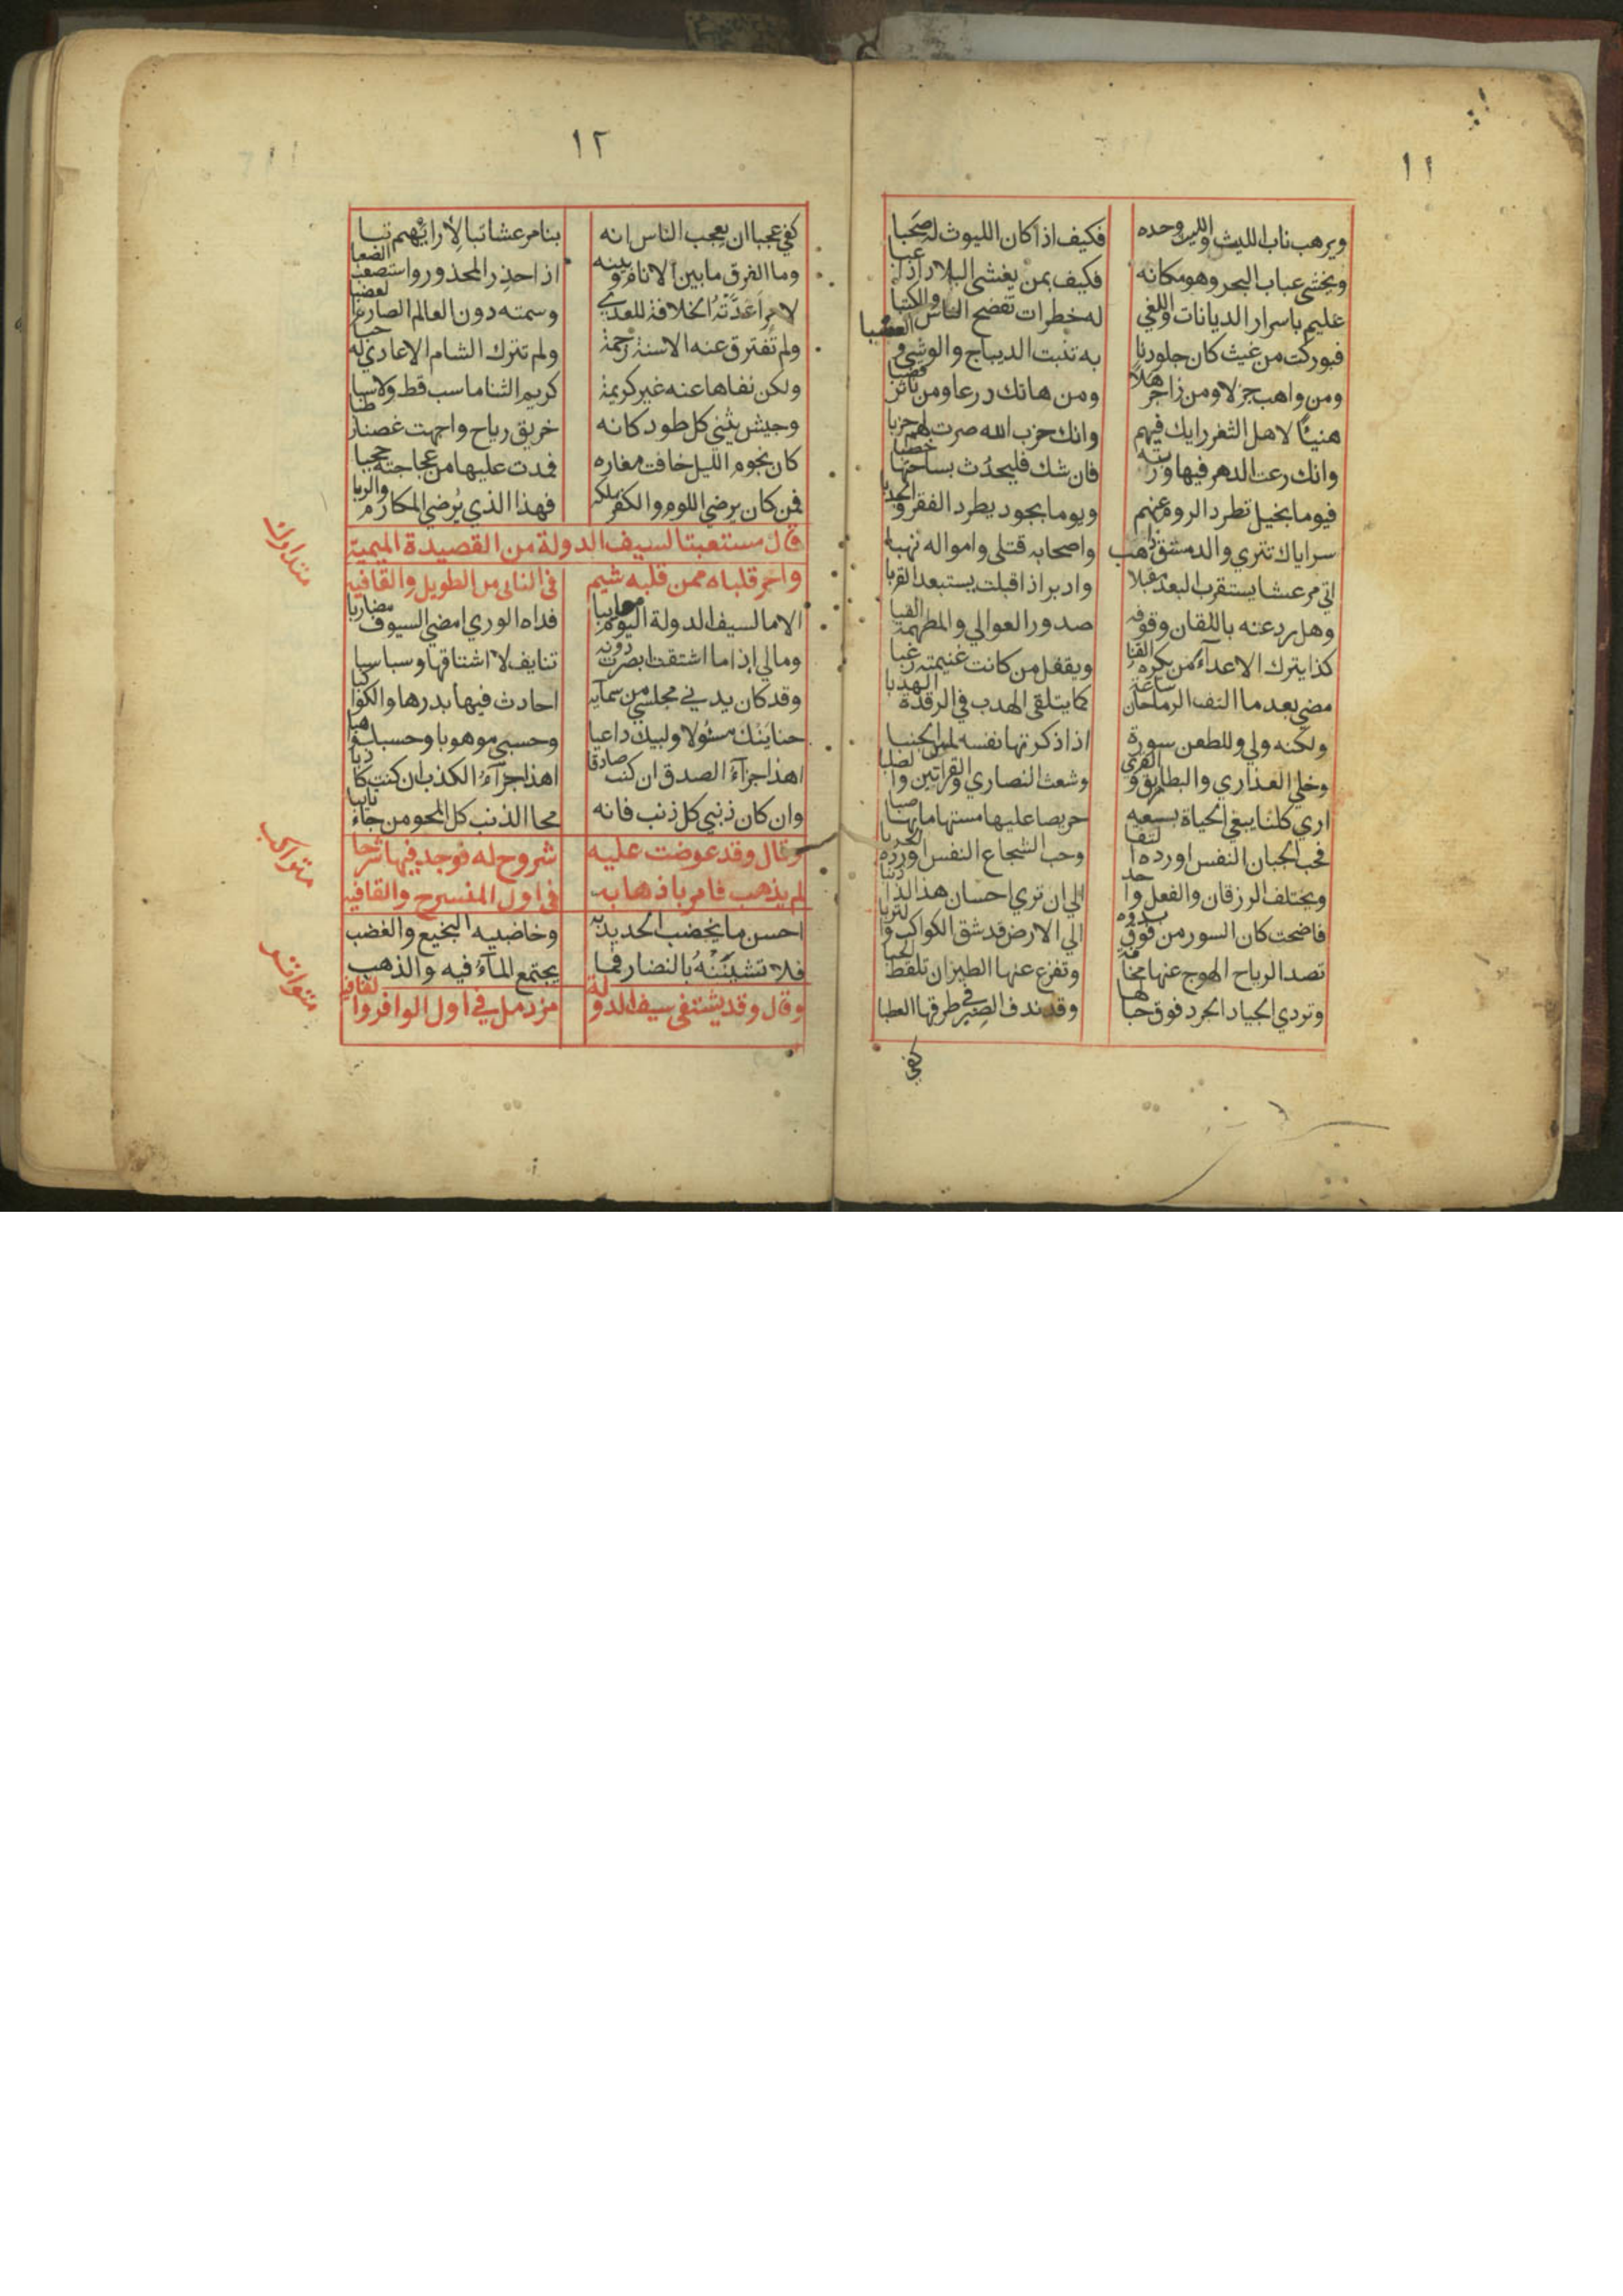 ١١
ويرهب ناب الليث والليث وحده فكيف اذا كان الليوث له صحبا
ويخشي عباب البحر وهو مكانه فكيف بمن يغشي البلاد اذا عبا
عليم باسرار الديانات واللغي له خطرات تفضح الناس والكتبا
فبوركت من غيث كان جلودنا به تنبت الديباج والوشي والعصبا
ومن واهب جزلا ومن زاجر هلا ومن هاتك درعا ومن ناثر قصبا
هنيئا لاهل الثغر رايك فيهم وانك حزب الله صرت لهم حزبا
وانك رعت الدهر فيها وريبه فان شك فليحدث بساحتها خطبا
فيوما بخيل تطرد الروم عنهم ويوما بجود يطرد الفقر والجدبا
سراياك تتري والدمستق هارب واصحابه قتلي وامواله نهبا
اتي مرعشا يستقرب البعد مقبلا وادبر اذ اقبلت يستبعد القربا
كذا يترك الاعداء من يكره القنا ويقفل من كانت غنيمته رعبا
وهل رد عنه باللقان وقوفه صدور العوالي والمطهمة القبا
مضي بعد ما التف الرماحان ساعة كما يتلقي الهدب في الرقدة الهدبا
ولكنه ولي وللطعن سورة اذا ذكرتها نفسه لمس الجنبا
وخلي العذاري والبطاريق والقري وشعث النصاري والقرابين والصلبا
اري كلنا يبغي الحياة بسعيه حريصا عليها مستهاما بها صبا
فحب الجبان النفس اورده التقا وحب الشجاع النفس اورده الحربا
ويختلف الرزقان والفعل واحد الي ان تري احسان هذا لذا ذنبا
فاضحت كان السور من فوق بدوه الي الارض قد شق الكواكب والتربا
تصد الرياح الهوج عنها مخافة وتفزع عنها الطير ان تلقط الحبا
وتردي الجياد الجرد فوق جبالها وقد ندف الصنبر في طرقها العطبا
كفي
١٢
كفي عجبا ان يعجب الناس انه بنا مرعشا تبا لارائهم تبا
وما الفرق ما بين الانام وبينه اذا حذر المحذور واستصعب الصعبا
لامر اعدته الخلافة للعدي وسمته دون العالم الصارم العضبا
ولم تفترق عنه الاسنة رحمة ولم تترك الشام الاعادي له حبا
ولكن نفاها عنه غير كريمة كريم الثنا ما سب قط ولا سبا
وجيش يثني كل طود كانه خريق رياح واجهت غصنا رطبا
كان نجوم الليل خافت مغاره فمدت عليها من عجاجته حجبا
فمن كان يرضي اللوم والكفر ملكه فهذا الذي يرضي المكارم والربا
قال مستعتبا لسيف الدولة من القصيدة الميمية
متدارك
واحر قلباه ممن قلبه شيم في الثاني من الطويل والقافية
الا ما لسيف الدولة اليوم عاتبا فداه الوري امضي السيوف مضاربا
وما لي اذا ما اشتقت ابصرت دونه تنايف لا اشتاقها وسباسبا
وقد كان يدني مجلسي من سمآيه احادث فيها بدرها والكواكبا
حنانيك مسئولا ولبيك داعيا وحسبي موهوبا وحسبك واهبا
اهذا جزآء الصدق ان كنت صادقا اهذا جزآء الكذب ان كنت كاذبا
وان كان ذنبي كل ذنب فانه محا الذنب كل المحو من جاء تايبا
متراكب
وقال وقد عرضت عليه شروح له فوجد فيها سرحا
لم يذهب فامر باذهابه في اول المنسرح والقافية
احسن ما يخضب الحديد به وخاضبيه النجيع والغضب
فلا تشيننه بالنضار فما يجتمع المآء فيه والذهب
متواتر
وقال وقد يشتفي سيف الدولة من دمل في اول الوافر والقافية